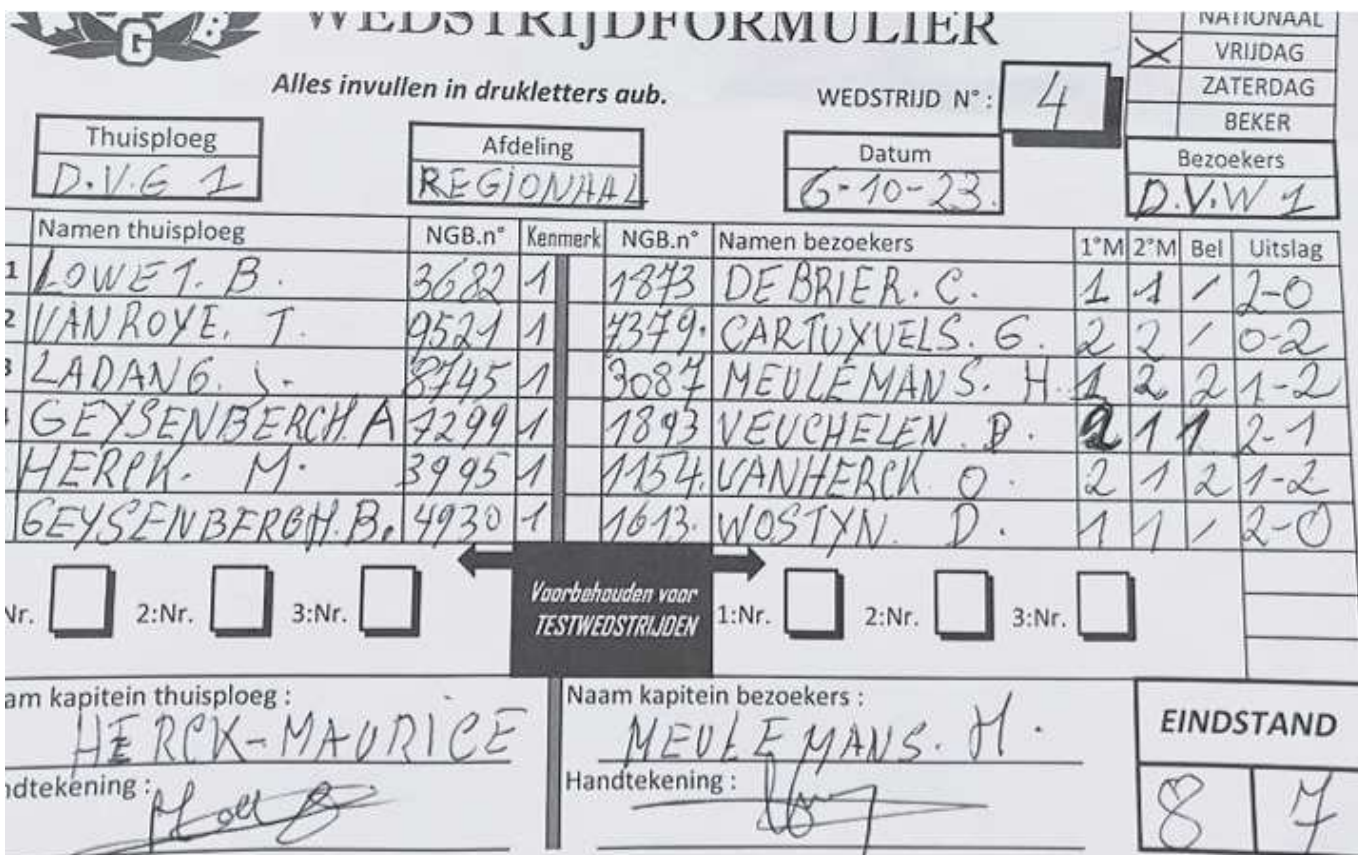 G B
WEDSTRIJDFORMULIER
NATIONAAL
X VRIJDAG
ZATERDAG
BEKER
Alles invullen in drukletters aub.
WEDSTRIJD N° : 4
Thuisploeg Afdeling Datum Bezoekers
D.V.G 1 REGIONAAL 6-10-23. D.V.W 1
Namen thuisploeg NGB.n° Kenmerk NGB.n° Namen bezoekers 1°M 2°M Bel Uitslag
1 LOWET. B. 3682 1 1873 DEBRIER. C. 1 1 / 2-0
2 VANROYE. T. 9521 1 7379. CARTUYVELS. G. 2 2 / 0-2
3 LADANG. J. 8745 1 3087 MEULEMANS. H. 1 2 2 1-2
GEYSENBERGH. A 7299 1 1893 VEUCHELEN. D. 2 1 1 2-1
HERCK. M. 3995 1 1154. VANHERCK O. 2 1 2 1-2
GEYSENBERGH. B. 4930 1 1613. WOSTYN. D. 1 1 / 2-0
Nr. 2:Nr. 3:Nr. Voorbehouden voor TESTWEDSTRIJDEN 1:Nr. 2:Nr. 3:Nr.
am kapitein thuisploeg : Naam kapitein bezoekers :
HERCK-MAURICE MEULEMANS. H.
EINDSTAND
ndtekening : Handtekening :
8 7